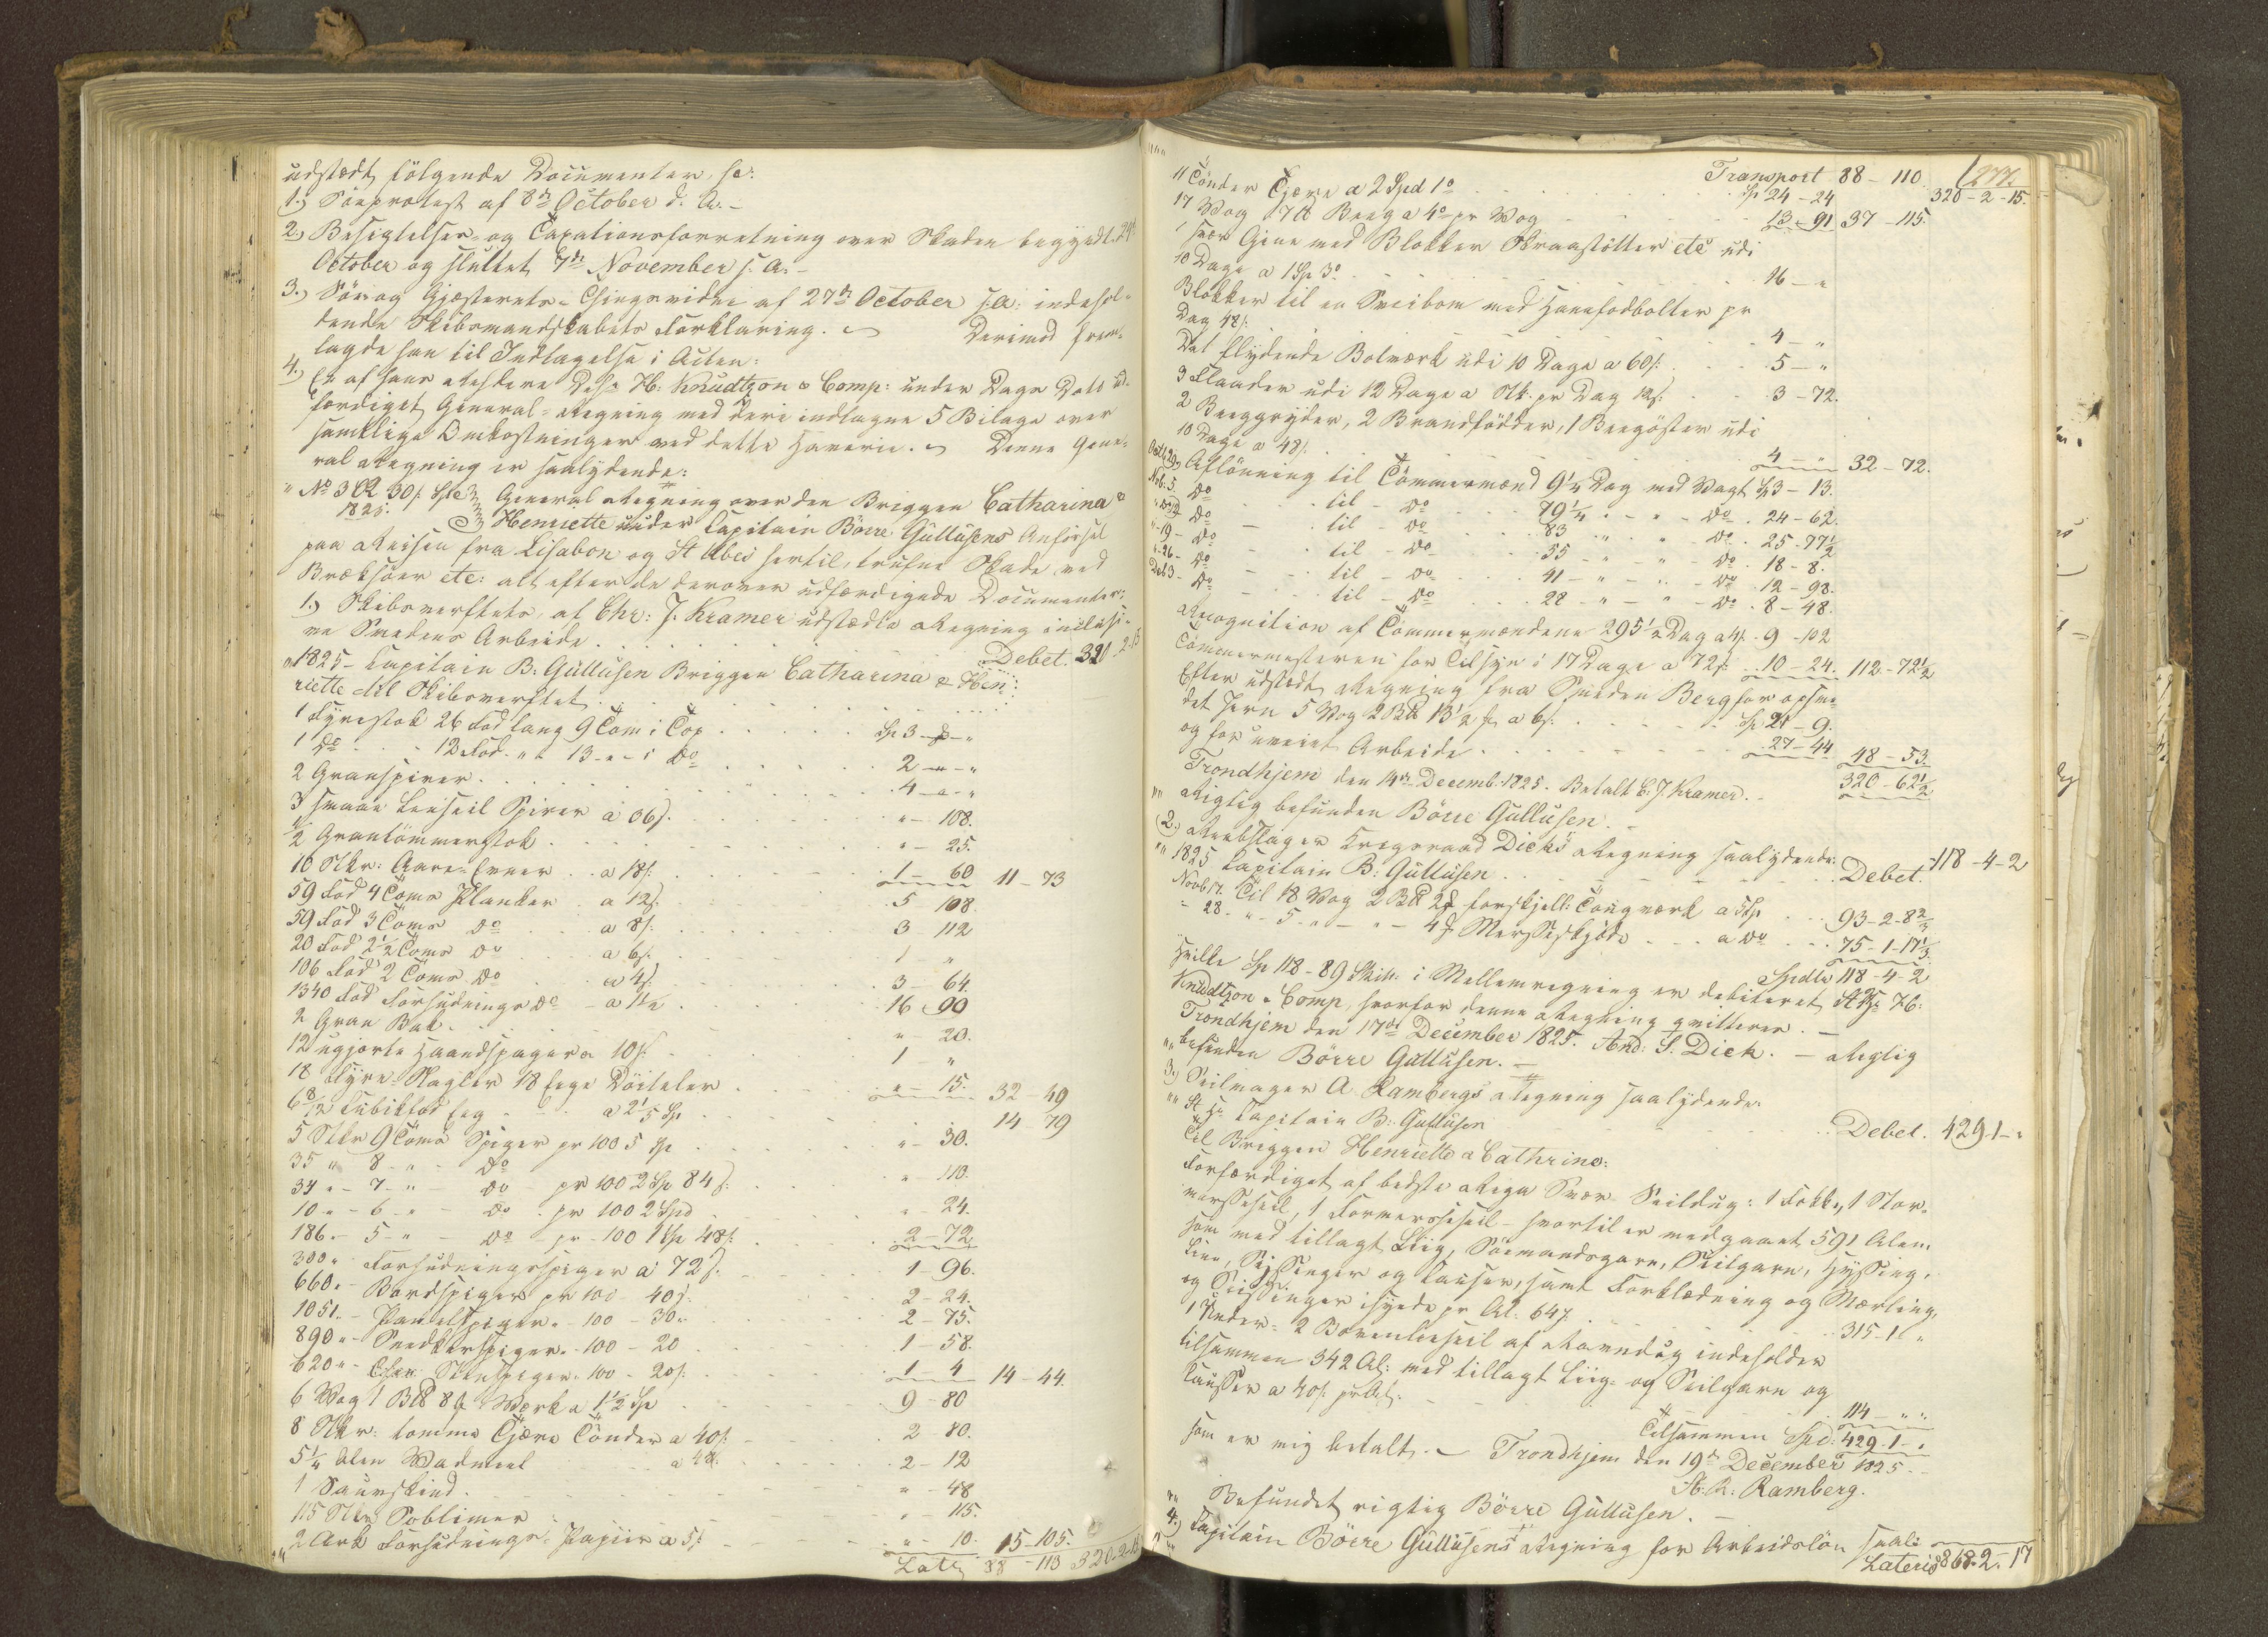 udstædt følgende Documenter, sc:
1.) Søeprotest af 8de October d: A. -
2.) Besigtelses- og Taxationsforretning over Skaden begyndt 29de
October og sluttet 7de November s. A. -
3.) Søe og Gjesterets-Thingsvidne af 27de October s. A. indehol-
dende Skibsmandskabets Forklaring. Derimod frem-
lagde han til Indtagelse i Acten:
4.) En af hans Rehdere DHrr H: Knudtzon & Comp: under Dags Dato ud-
færdiget General-Regning med deri indtagne 5 Bilage over
samtlige Omkostninger ved dette Haverie. Denne Gene-
ral Regning er saalydende:
" No 302 30 s. General Regning over den Briggen Catharina &
1825. Henriette under Capitain Börre Gullusens Anførsel
paa Reisen fra Lisabon og St Ubes hertil, trufne Skade ved
Bræksøer etc: alt efter de derover udfærdigede Documenter:
1.) Skibsverftets, af Chr: J. Kramer udstædte Regning inclusi-
ve Smedens Arbeide . . . . 320-2-15
1825 - Capitain B: Gullusen Briggen Catharina & Hen- Debet.
riette til Skibsverftet . . .
1 Fyrestok 26 Fod lang 9 Tom: i Top . . . Sp 3 - " - "
1 do . . 12 Fod - " 13 - " - i do . . . 2 - " - "
2 Granspirer . . . 4 - " - "
3 smaae Leeseil Spirer a 36 s. . . . " - 108.
2 Grantømmerstok . . . " - 25.
10 Stkr: Aare-Emner . . a 18 s. . . . 1 - 60 11 - 73
59 Fod 4 Toms Planker . a 12 s. . . . 5 108.
59 Fod 3 Toms do . . a 8 s. . . . 3 - 112
20 Fod 2½ Toms do . . a 6 s. . . . 1 - "
106 Fod 2 Toms do . . a 4 s. . . . 3 - 64.
1340 Fod Forhudnings do - a 1½ . . . 16 90
2 Gran Bak . . . " - 20.
12 ugjorte Haandspager a 10 s. . . . 1 "
18 Fyre-Nagler 18 Eege Döiteler . . . " - 15. 32 - 49
6 8/12 Cubikfod Eeg - . . a 2⅕ Sp . . . 14 79
5 Stkr 9 Toms Spiger pr 100 5 Sp . . . " - 30.
35 " 8 - " - do - pr 100 2 Sp 84 s. . . . " - 110.
34 " - 7 - " - do . pr 100 2 Spd . . . " - 24.
10 - " - 6 - " - do
186 - 5 - " - do - pr - 100 1 Sp 48 s. . . . 2 - 72
300 " Forhudningsspiger a 72 s. . . . 1 - 96.
660 " - Bordspiger pr 100 - 40 s. . . . 2 - 24.
1051 - Panelspiger - " - 100 - 30 " . . . 2 - 75.
890 " - 100 - 20 . . . 1 - 58.
620 " - 100 - 20 s. . . . 1 - 4 14 - 44.
6 Wog 1 B℔ 8 ℔ Werk a 1½ Sp . . . 9 - 80
8 Stkr: tomme Tjære Tønder a 40 s. . . . 2 80.
5¼ Alen Wadmeel . . . 2 - 12
1 Saueskind . . . " - 48
115 Stkr Soblimer . . . " 115.
2 Ark Forhudnings-Papiir a 5 s. . . . " - 10. 15 - 105.
Latr 88 - 110 320.2.15
277.
Transport 88 - 110. 320 - 2 - 15.
11 Tønder Tjære a 2 Spd 1o . . . Sp 24 - 24
17 Wog 17 ℔ Beeg a 4o pr Wog . . . 13 - 91 37 - 115.
1 svær Gine med Blokker Skraastötter etc udi
10 Dage a 1 Sp 3o . . . 16 - "
Blokker til en Sveibom med Hanefodbolter pr
Dag 48 s. . . . 4 - "
Det flydende Bolværk udi 10 Dage a 60 s. . . . 5 - "
3 Flaader udi 12 Dage a Stk: pr Dag 12 s. . . . 3 - 72.
2 Beeggryder, 2 Brandfødder, 1 Beegøster udi
10 Dage a 48 s. . . . 4 - " 32 - 72.
Octb 29, Aflönning til Tömmermænd 9¼ Dag med Vagt Sp 3 - 13.
Nvb. 5. do . . til - do . . . 79¼ . . " - do . 24 - 62.
" 12 do . . til - do . . . 83 . . " - do . 25 - 77½
" - 19 - do . . til - do . . . 55 - " - " - do . 18 - 8.
" - 26 - do . . til - do . . . 41 - " - " - do . 12 - 98.
Decb 3 - do . . til - do . . . 28 - " - " - do . 8 - 48.
Recognition af Tømmermændene 295½ Dag a 4 s. . 9 - 102
Tømmermesteren for Tilsyn i 17 Dage a 72 s. . . 10 - 24. 112 - 72½
Efter udstædt Regning fra Smeden Berg for opsme-
det Jern 5 Wog 2 B℔ 13½ ℔ a 6 s. . . . Sp 21 - 9.
og for ureent Arbeide . . . 27 - 44 48 - 53.
320 - 62½
Trondhjem den 14de Decemb: 1825. Betalt C: J. Kramer.
"" Rigtig befunden Börre Gullusen. -
2.) Reebslager Krigsraad Dicks Regning saalydende:
"" 1825 Capitain B: Gullusen . . . Debet. 118 - 4 - 2
Novb 17. Til 18 Wog 2 B℔ 2 ℔ forskjell: Tougværk a 5 Sp . . 93 - 2 - 8⅔
" 28. " - 5 - " - " - 4 ℔ Mersseskjøde . . . a do . . . 75 - 1 - 17⅓
Spdlr 118 - 4 - 2
Hvilke Sp 118 - 89 Skill: i Mellemregning er debiteret H:
Knudtzon & Comp, hvorfor denne Regning qvitteres. -
Trondhjem den 17de December 1825. And: S. Dick. - Rigtig
"" befunden Börre Gullusen. -
3.) Seilmager A Rambergs Regning saalydende:
"" Capitain B: Gullusen . . . Debet. 429.1 - "
Til Briggen Henriette & Cathrine:
Forfærdiget af bedste Riga Svær-Seildug: 1 Fokke, 1 Stor-
mersseseil, 1 Formersseseil - hvortil er medgaaet 591 Alen,
som med tillagt Liig, Sømandsgarn, Seilgarn, Hyssing,
Line, Seissinger og Causer, samt Forklædning og Mærling,
og Seissinger isyede pr Al: 64 s. . . . 315 - 1 "
1 Under- 2 Bovenleeseil af Ravndug indeholder
tilsammen 342 Al: med tillagt Liig- og Seilgarn og
Causser a 40 s. pr Al: . . . 114 - " "
Tilsammen Spd: 429.1 - "
som er mig betalt. Trondhjem den 19de December 1825. -
A. Ramberg.
"" Befundet rigtig Börre Gullusen. -
4.) Capitain Börre Gullusens Regning for Arbeidsløn saal:
Lateris 868.2.17